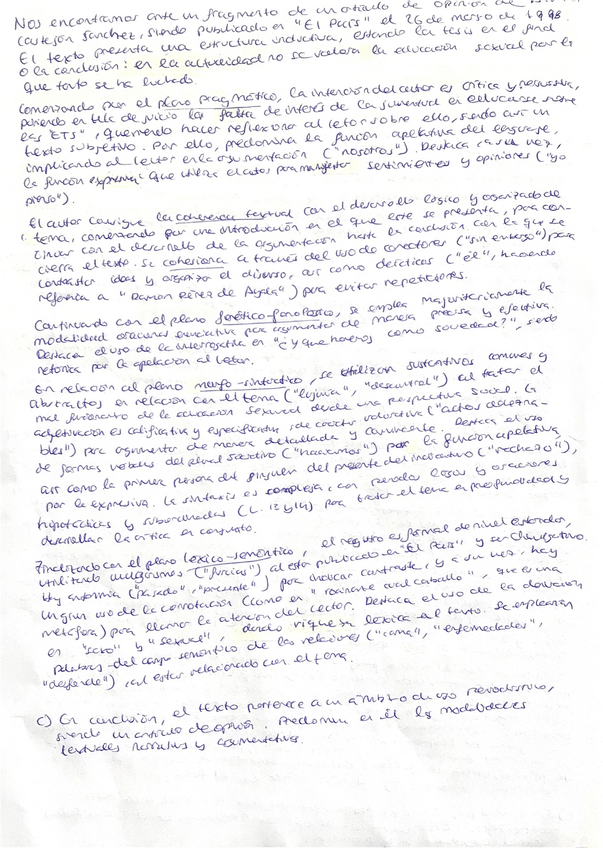 Nos encontramos ante un fragmento de un artículo de opinión de
Castejón Sánchez, siendo publicado en "El País" el 26 de marzo de 1998.
El texto presenta una estructura inductiva, estando la tesis en el final
o la conclusión: en la actualidad no se valora la educación sexual por la
que tanto se ha luchado.
Comenzando por el plano pragmático, la intención del autor es crítica y persuasiva,
poniendo en tela de juicio la falta de interés de la juventud en educarse sobre
las "ETS", queriendo hacer reflexionar al lector sobre ello, siendo así un
texto subjetivo. Por ello, predomina la función apelativa del lenguaje,
implicando al lector en la argumentación ("nosotros"). Destaca a su vez,
la función expresiva que utiliza el autor para manifestar sentimientos y opiniones ("yo
pienso").
El autor consigue la coherencia textual con el desarrollo lógico y organizado de
tema, comenzando por una introducción en el que este se presenta, para con-
tinuar con el desarrollo de la argumentación hasta la conclusión con la que se
cierra el texto. Se cohesiona a través del uso de conectores ("sin embargo") para
contrastar ideas y organizar el discurso, así como deícticos ("él", haciendo
referencia a "Ramón Pérez de Ayala") para evitar repeticiones.
Continuando con el plano fonético-fonológico, se emplea mayoritariamente la
modalidad oracional enunciativa para argumentar de manera precisa y efectiva.
Destaca el uso de la interrogativa en "¿y qué hacemos como sociedad?", siendo
retórica por la apelación al lector.
En relación al plano morfo-sintáctico, se utilizan sustantivos comunes y
abstractos en relación con el tema ("lujuria", "descontrol") al tratar el
mal funcionamiento de la educación sexual desde una perspectiva social. La
adjetivación es calificativa y especificativa, de carácter valorativo ("actos
bles") para argumentar de manera detallada y convincente. Destaca el uso
de formas verbales del plural sociativo ("hacíamos") por la función apelativa,
así como la primera persona del singular del presente del indicativo ("rechazo"),
por la expresiva. La sintaxis es compleja, con períodos largos y oraciones
hipotácticas y subordinadas (L. 13 y 14) para tratar el tema en profundidad y
desarrollar la crítica en conjunto.
Finalizando con el plano léxico-semántico, el registro es formal de nivel estándar,
utilizando ("furcias") al estar publicado en "El País" y ser divulgativo.
Hay antonimia ("pasado", "presente") para indicar contraste, y a su vez, hay
un gran uso de la connotación (como en "rocinante cual caballo", que es una
metáfora) para llamar la atención del lector. Destaca el uso de la derivación
en "sexo" y "sexual", dando riqueza léxica al texto. Se emplean
palabras del campo semántico de las relaciones ("cama", "enfermedades",
"desfende") al estar relacionado con el tema.
c) En conclusión, el texto pertenece a un ámbito de uso periodístico,
siendo un artículo de opinión. Predominan en él las modalidades
textuales narrativas y argumentativas.